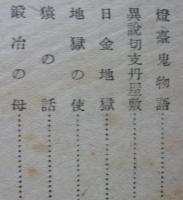 燈臺鬼物語
異說切支丹屋敷
日金地獄
地獄の使
猿の話
鍛冶の母